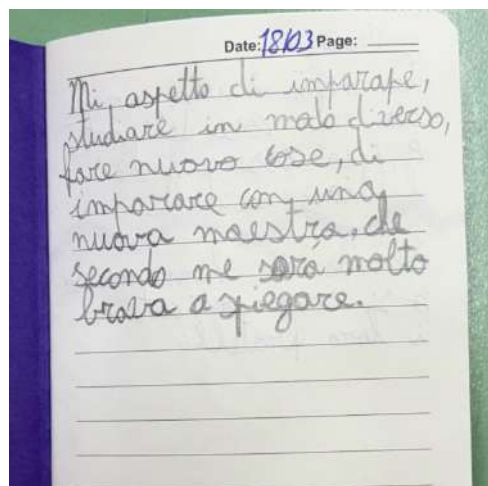 Date: 18/03 Page:
Mi aspetto di imparare,
studiare in modo diverso,
fare nuovo cose, di
imparare con una
nuova maestra, che
secondo me sarà molto
brava a spiegare.